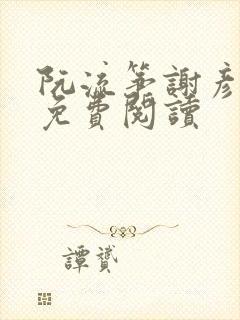 阮流箏謝彥
免費閱讀
譚贇